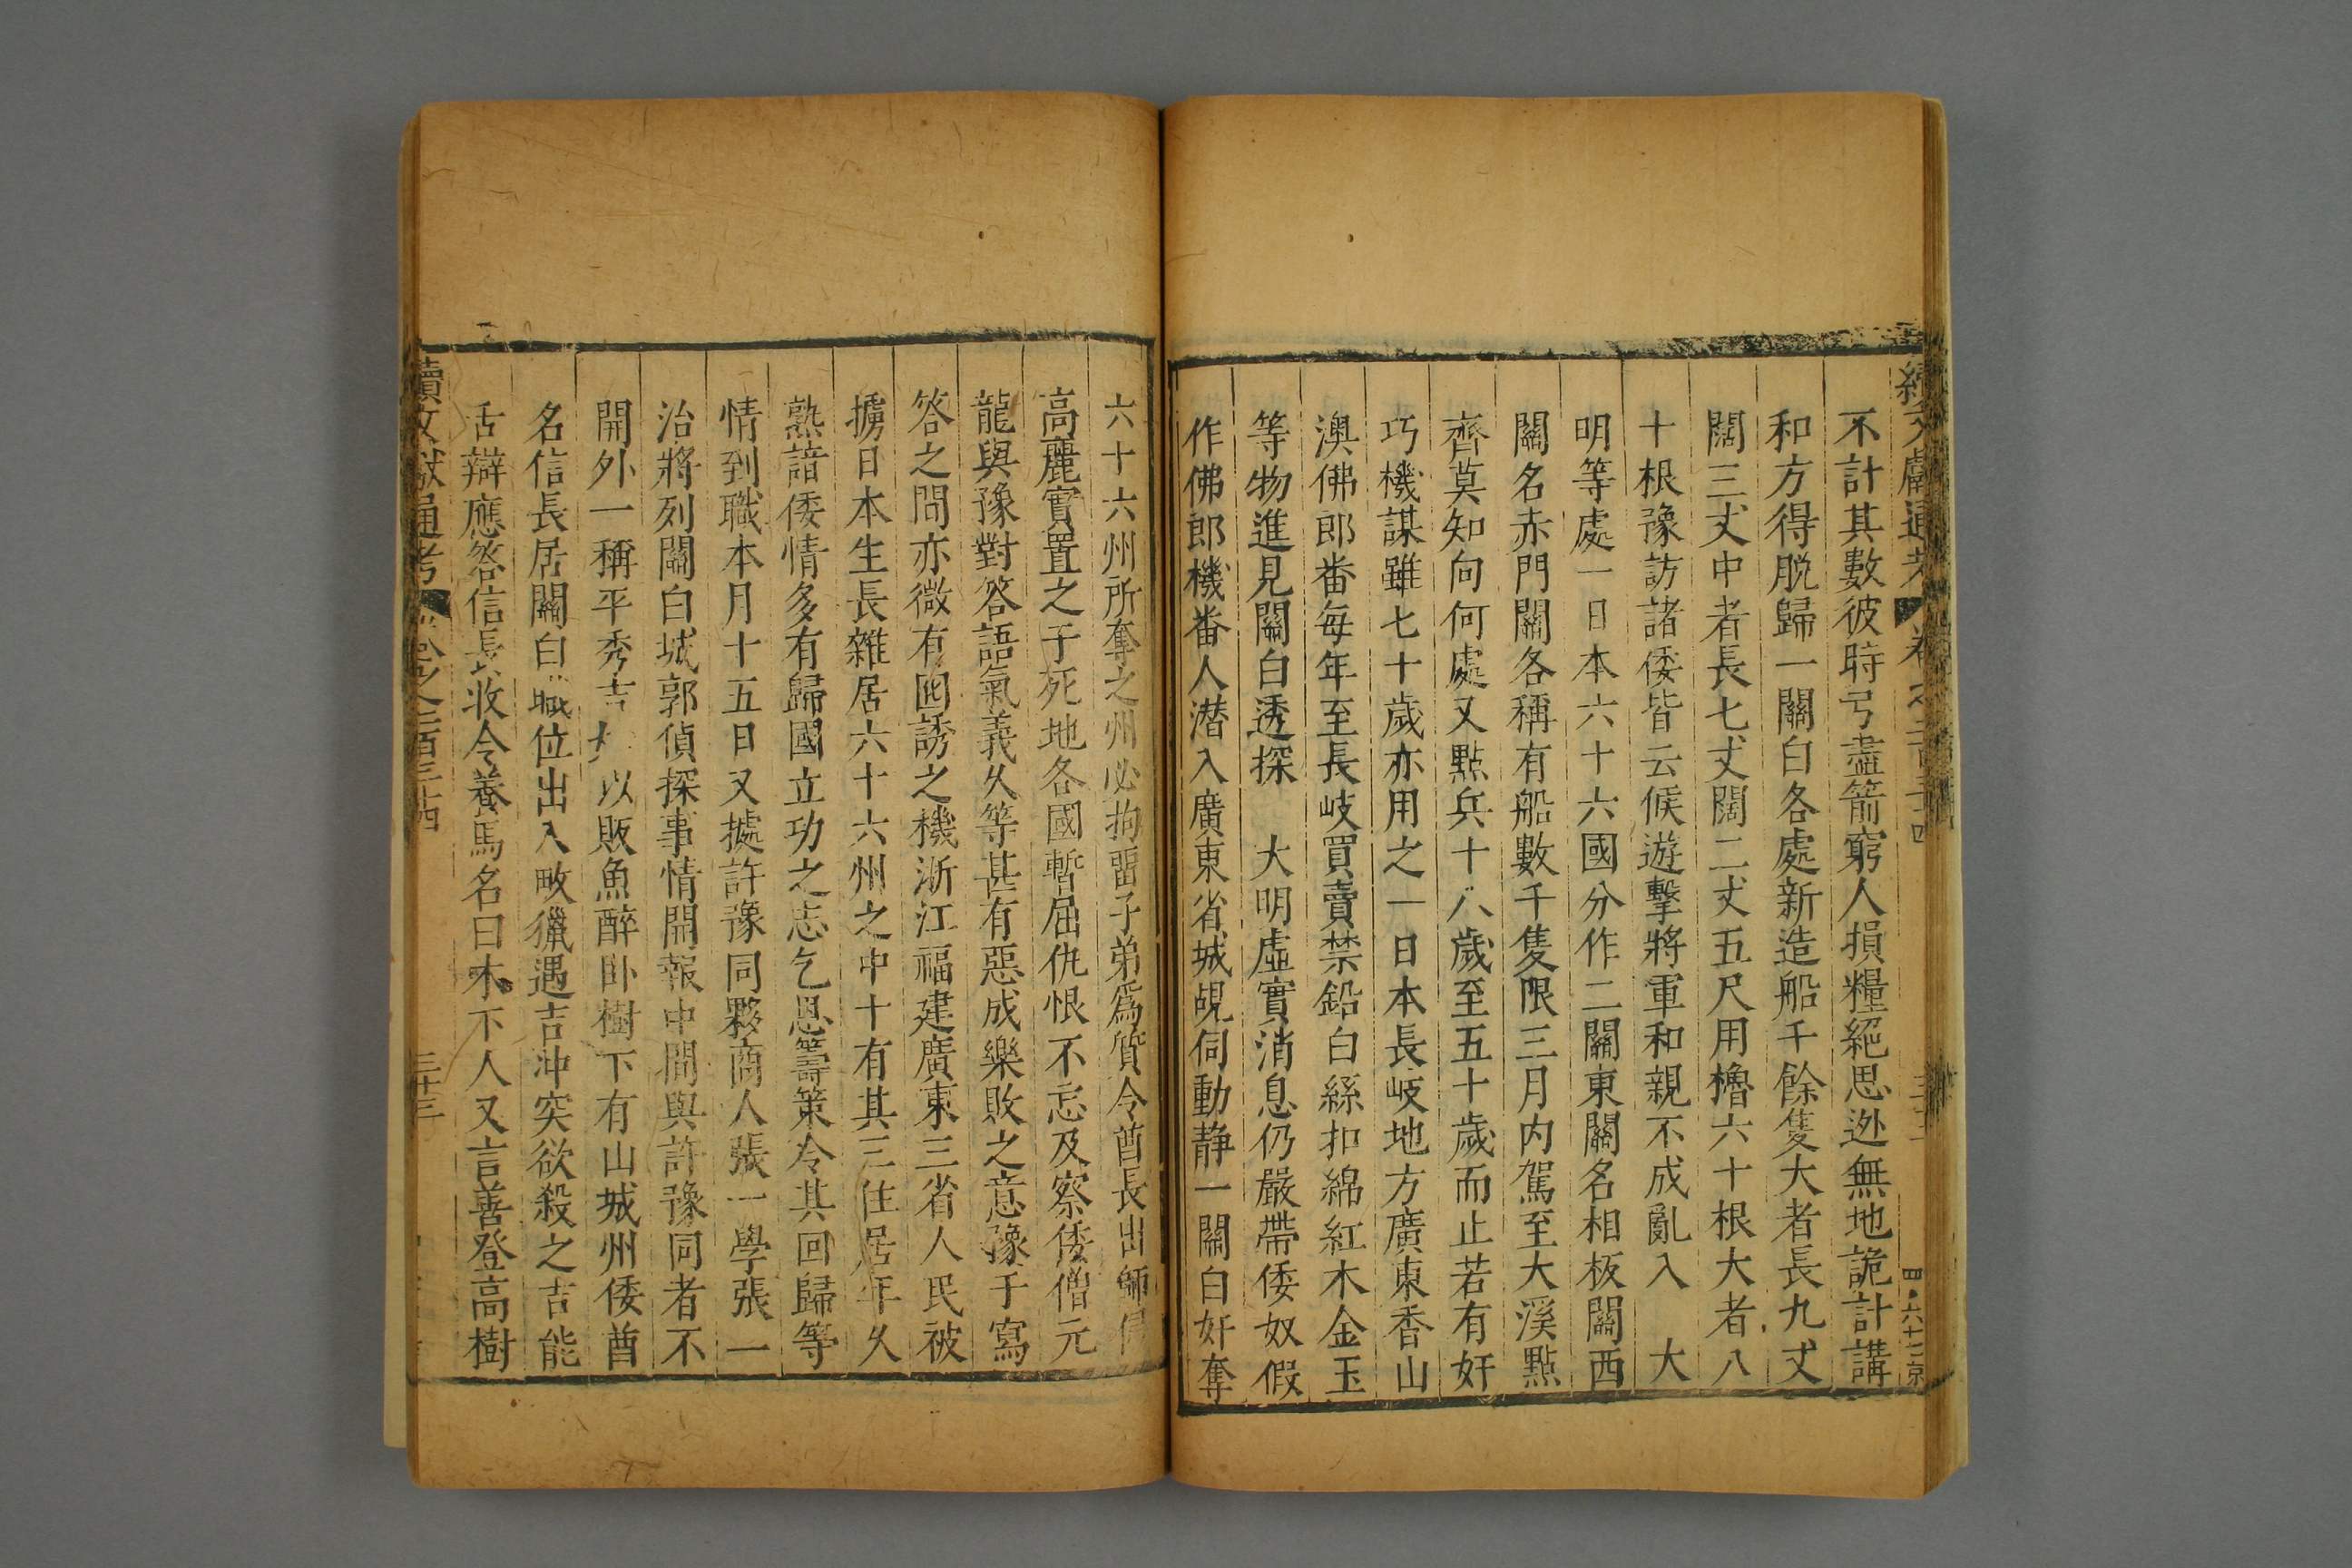 續文獻通考 卷之二百三十四
不計其數彼時弓盡箭窮人損糧絕思迯無地詭計講
和方得脫歸一關白各處新造船千餘隻大者長九丈
闊三丈中者長七丈闊二丈五尺用櫓六十根大者八
十根豫訪諸倭皆云候遊擊將軍和親不成亂入 大
明等處一日本六十六國分作二關東關名相板關西
關名赤門關各稱有船數千隻限三月内駕至大溪點
齊莫知向何處又點兵十八歲至五十歲而止若有奸
巧機謀雖七十歲亦用之一日本長岐地方廣東香山
澳佛郎番每年至長岐買賣禁鉛白絲扣綿紅木金玉
等物進見關白透探 大明虛實消息仍嚴帶倭奴假
作佛郎機番人潜入廣東省城覘伺動静一關白奸奪
六十六州所奪之州必拘畱子弟爲質令酋長出師
高麗實置之于死地各國暫屈仇恨不忘及察倭僧元
龍與豫對答語氣義久等甚有惡成樂敗之意豫于寫
答之問亦微有囮誘之機浙江福建廣東三省人民被
擄日本生長雜居六十六州之中十有其三住居年久
熟諳倭情多有歸國立功之志乞恩籌策令其回歸等
情到職本月十五日又據許豫同夥商人張一學張一
治將列關白城郭偵探事情開報中間與許豫同者不
開外一稱平秀吉 以販魚醉卧樹下有山城州倭酋
名信長居關白職位出入畋獵遇吉沖突欲殺之吉能
舌辯應答信長收令養馬名曰木下人又言善登高樹
續文獻通考 卷之二百三十四 三十三